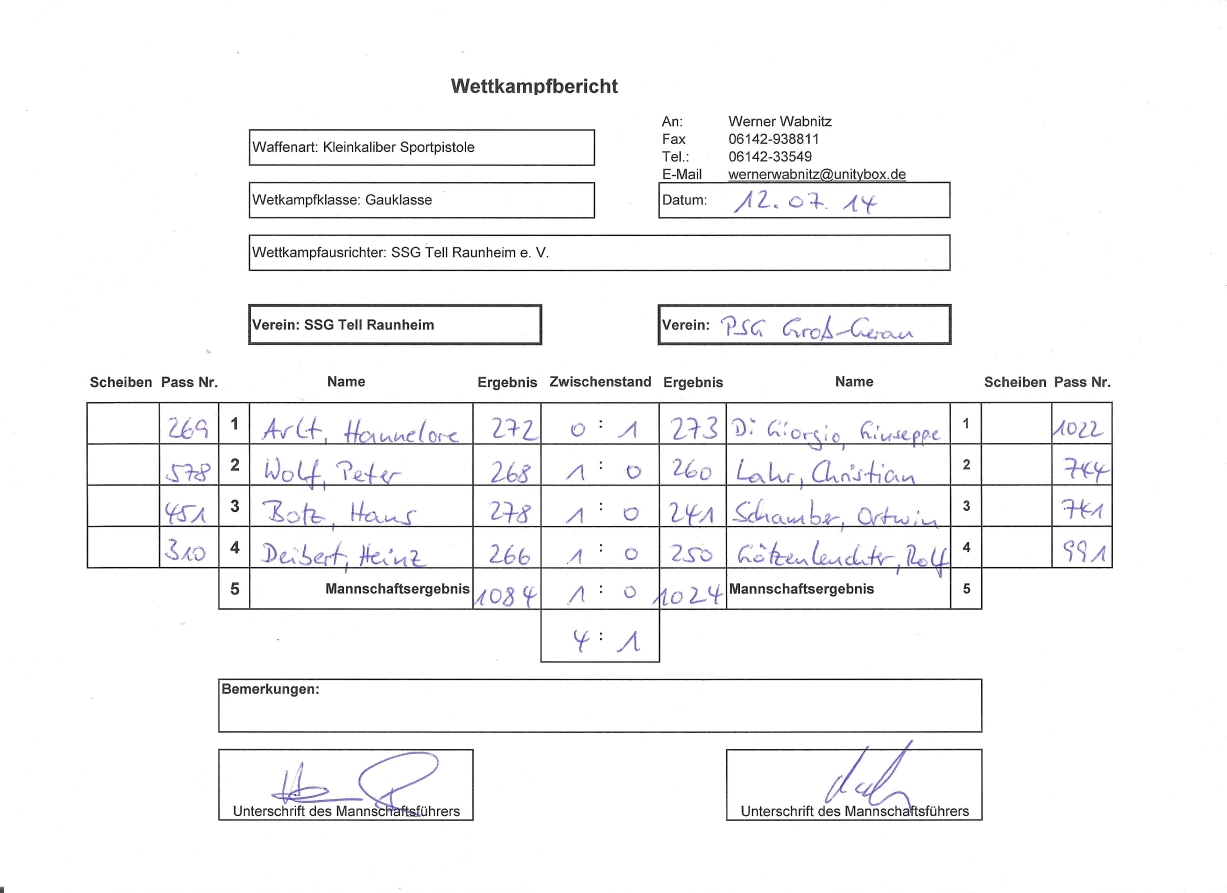 Wettkampfbericht
An: Werner Wabnitz
Fax 06142-938811
Tel.: 06142-33549
E-Mail wernerwabnitz@unitybox.de
Waffenart: Kleinkaliber Sportpistole
Wetkampfklasse: Gauklasse
Datum: 12.07.14
Wettkampfausrichter: SSG Tell Raunheim e. V.
Verein: SSG Tell Raunheim
Verein: PSG Groß-Gerau
Scheiben Pass Nr. Name Ergebnis Zwischenstand Ergebnis Name Scheiben Pass Nr.
269 1 Arlt, Hannelore 272 0 : 1 273 Di Giorgio, Giuseppe 1 1022
578 2 Wolf, Peter 268 1 : 0 260 Lahr, Christian 2 744
451 3 Botz, Hans 278 1 : 0 241 Schamber, Ortwin 3 741
310 4 Deibert, Heinz 266 1 : 0 250 Götzenleuchter, Rolf 4 991
5 Mannschaftsergebnis 1084 1 : 0 1024 Mannschaftsergebnis 5
4 : 1
Bemerkungen:
Unterschrift des Mannschaftsführers
Unterschrift des Mannschaftsführers